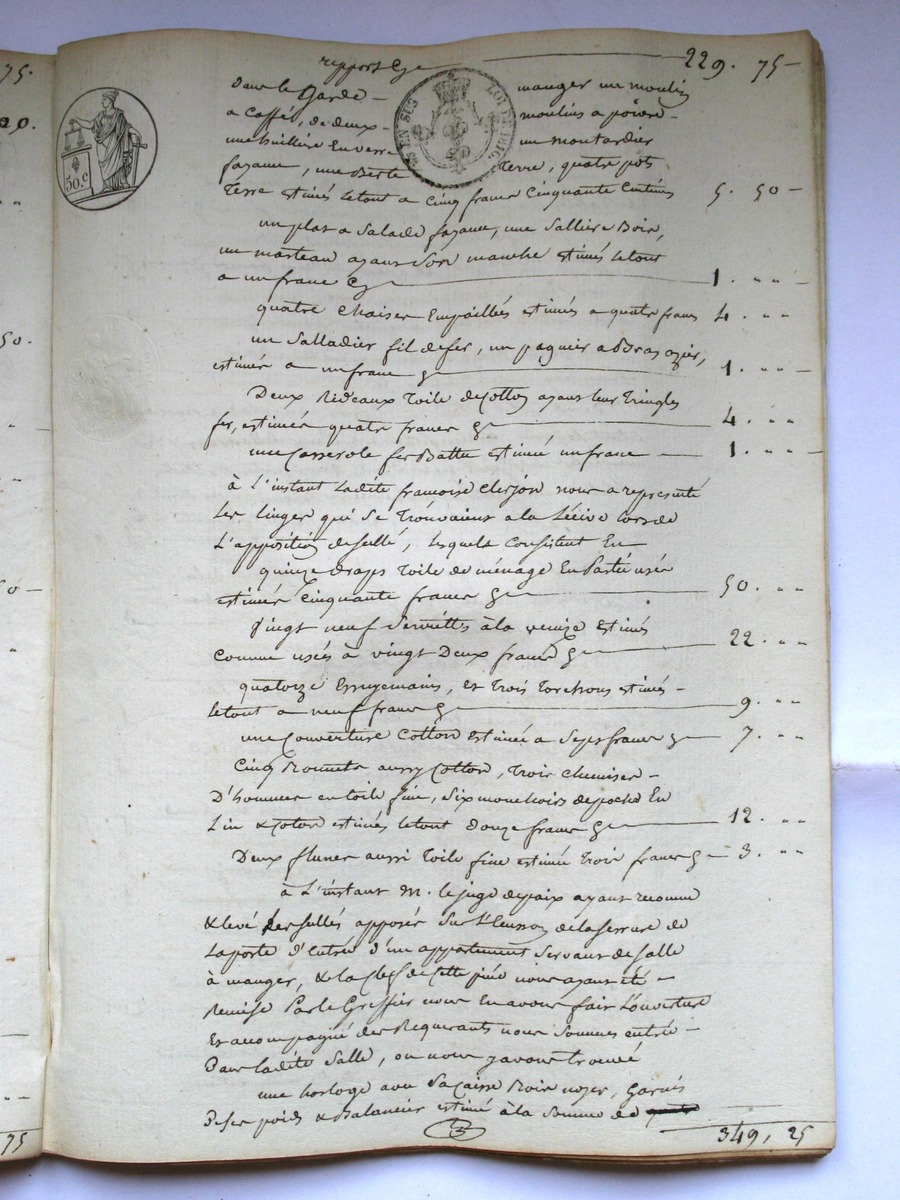 75.
20.
50.
50 —
75
50.c
EN SUS LOI DE 1816
report cy — 229. 75 —
Dans le Garde — manger un moulin
a caffé, de deux — moulins a poivre —
une huilliere En verre un moutardier
fayance, une Berte Terre, quatre pots
Terre estimés letout a Cinq francs Cinquante Centimes 5. 50 —
un plat a Salade fayance, une Salliere Bois,
un marteau ayant Son manche estimés letout
a un franc Cy — 1. " " —
quatre Chaises Empaillées estimées a quatre francs 4. " "
un Salladier fil de fer, un pagnier a Bras ozier,
estimés a un franc cy — 1. " " —
Deux Rideaux Toile de Cotton ayant leur Tringles
fer, estimés quatre francs cy — 4. " "
une Casserole fer Battu estimée un franc — 1. " " —
à L'instant Ladite francoise Clerjon nous a representé
Les linges qui Se Trouvaient a la Lécive lors de
L'apposition de scellé, lesquels Consistent En
quinze draps Toile de ménage En Partie usés
estimés Cinquante francs cy — 50. " "
Vingt neuf Serviettes à la venise Estimés
Comme usées à vingt Deux francs cy — 22. " "
quatorze Essuyemains, et Trois Torchons estimés —
letout a neuf francs cy — 9. " "
une Couverture Cotton Estimée a Sept francs cy — 7. " "
Cinq Bonnets aussy Cotton, Trois Chemises —
D'hommes en toile fine, Six mouchoirs de poche En
Lin & Coton estimés letout Douze francs cy — 12. " "
Deux aussi Toile fine estimée Trois francs cy — 3. " "
à L'instant M. le juge de paix ayant reconnu
& levé Les scellés apposés Sur L'Ecusson de la serrure de
La porte d'Entrée d'un appartement Servant de Salle
à manger, & la Clef de Cette pièce nous ayant été —
Remise Par le Greffier nous En avons fait L'ouverture
Et accompagné des Requerants nous Sommes entrés —
Dans ladite Salle, ou nous y avons trouvé
une horloge avec Sa Caisse Bois noyer, Garnie
De ses poids & Balancier estimé à la Somme de
349, 25